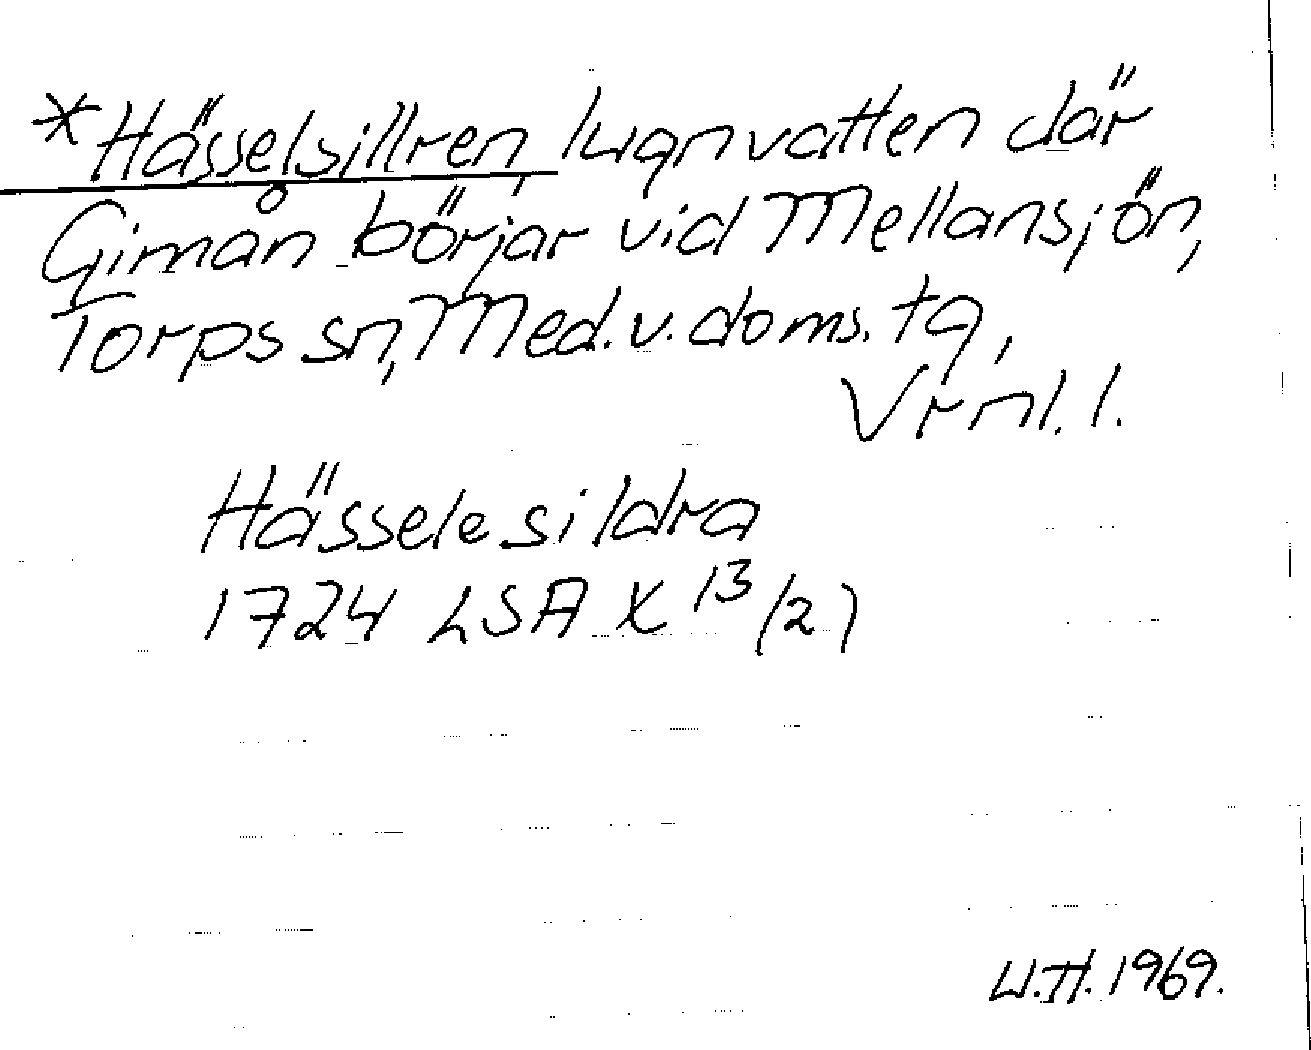 *Hässelsillren, lugnvatten där
Gimån börjar vid Mellansjön,
Torps sn, Med.v.doms. tg,
Vrml. l.
Hässelesildra
1724 LSA X 13/2)
W.H. 1969.